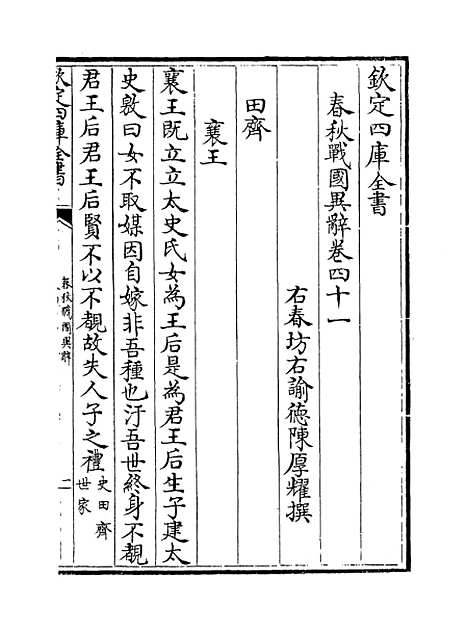 欽定四庫全書
春秋戰國異辭卷四十一
右春坊右諭德陳厚耀撰
田齊
襄王
襄王既立立太史氏女為王后是為君王后生子建太
史敫曰女不取媒因自嫁非吾種也汙吾世終身不覩
君王后君王后賢不以不覩故失人子之禮
史田齊
世家
欽定四庫全書
春秋戰國異辭